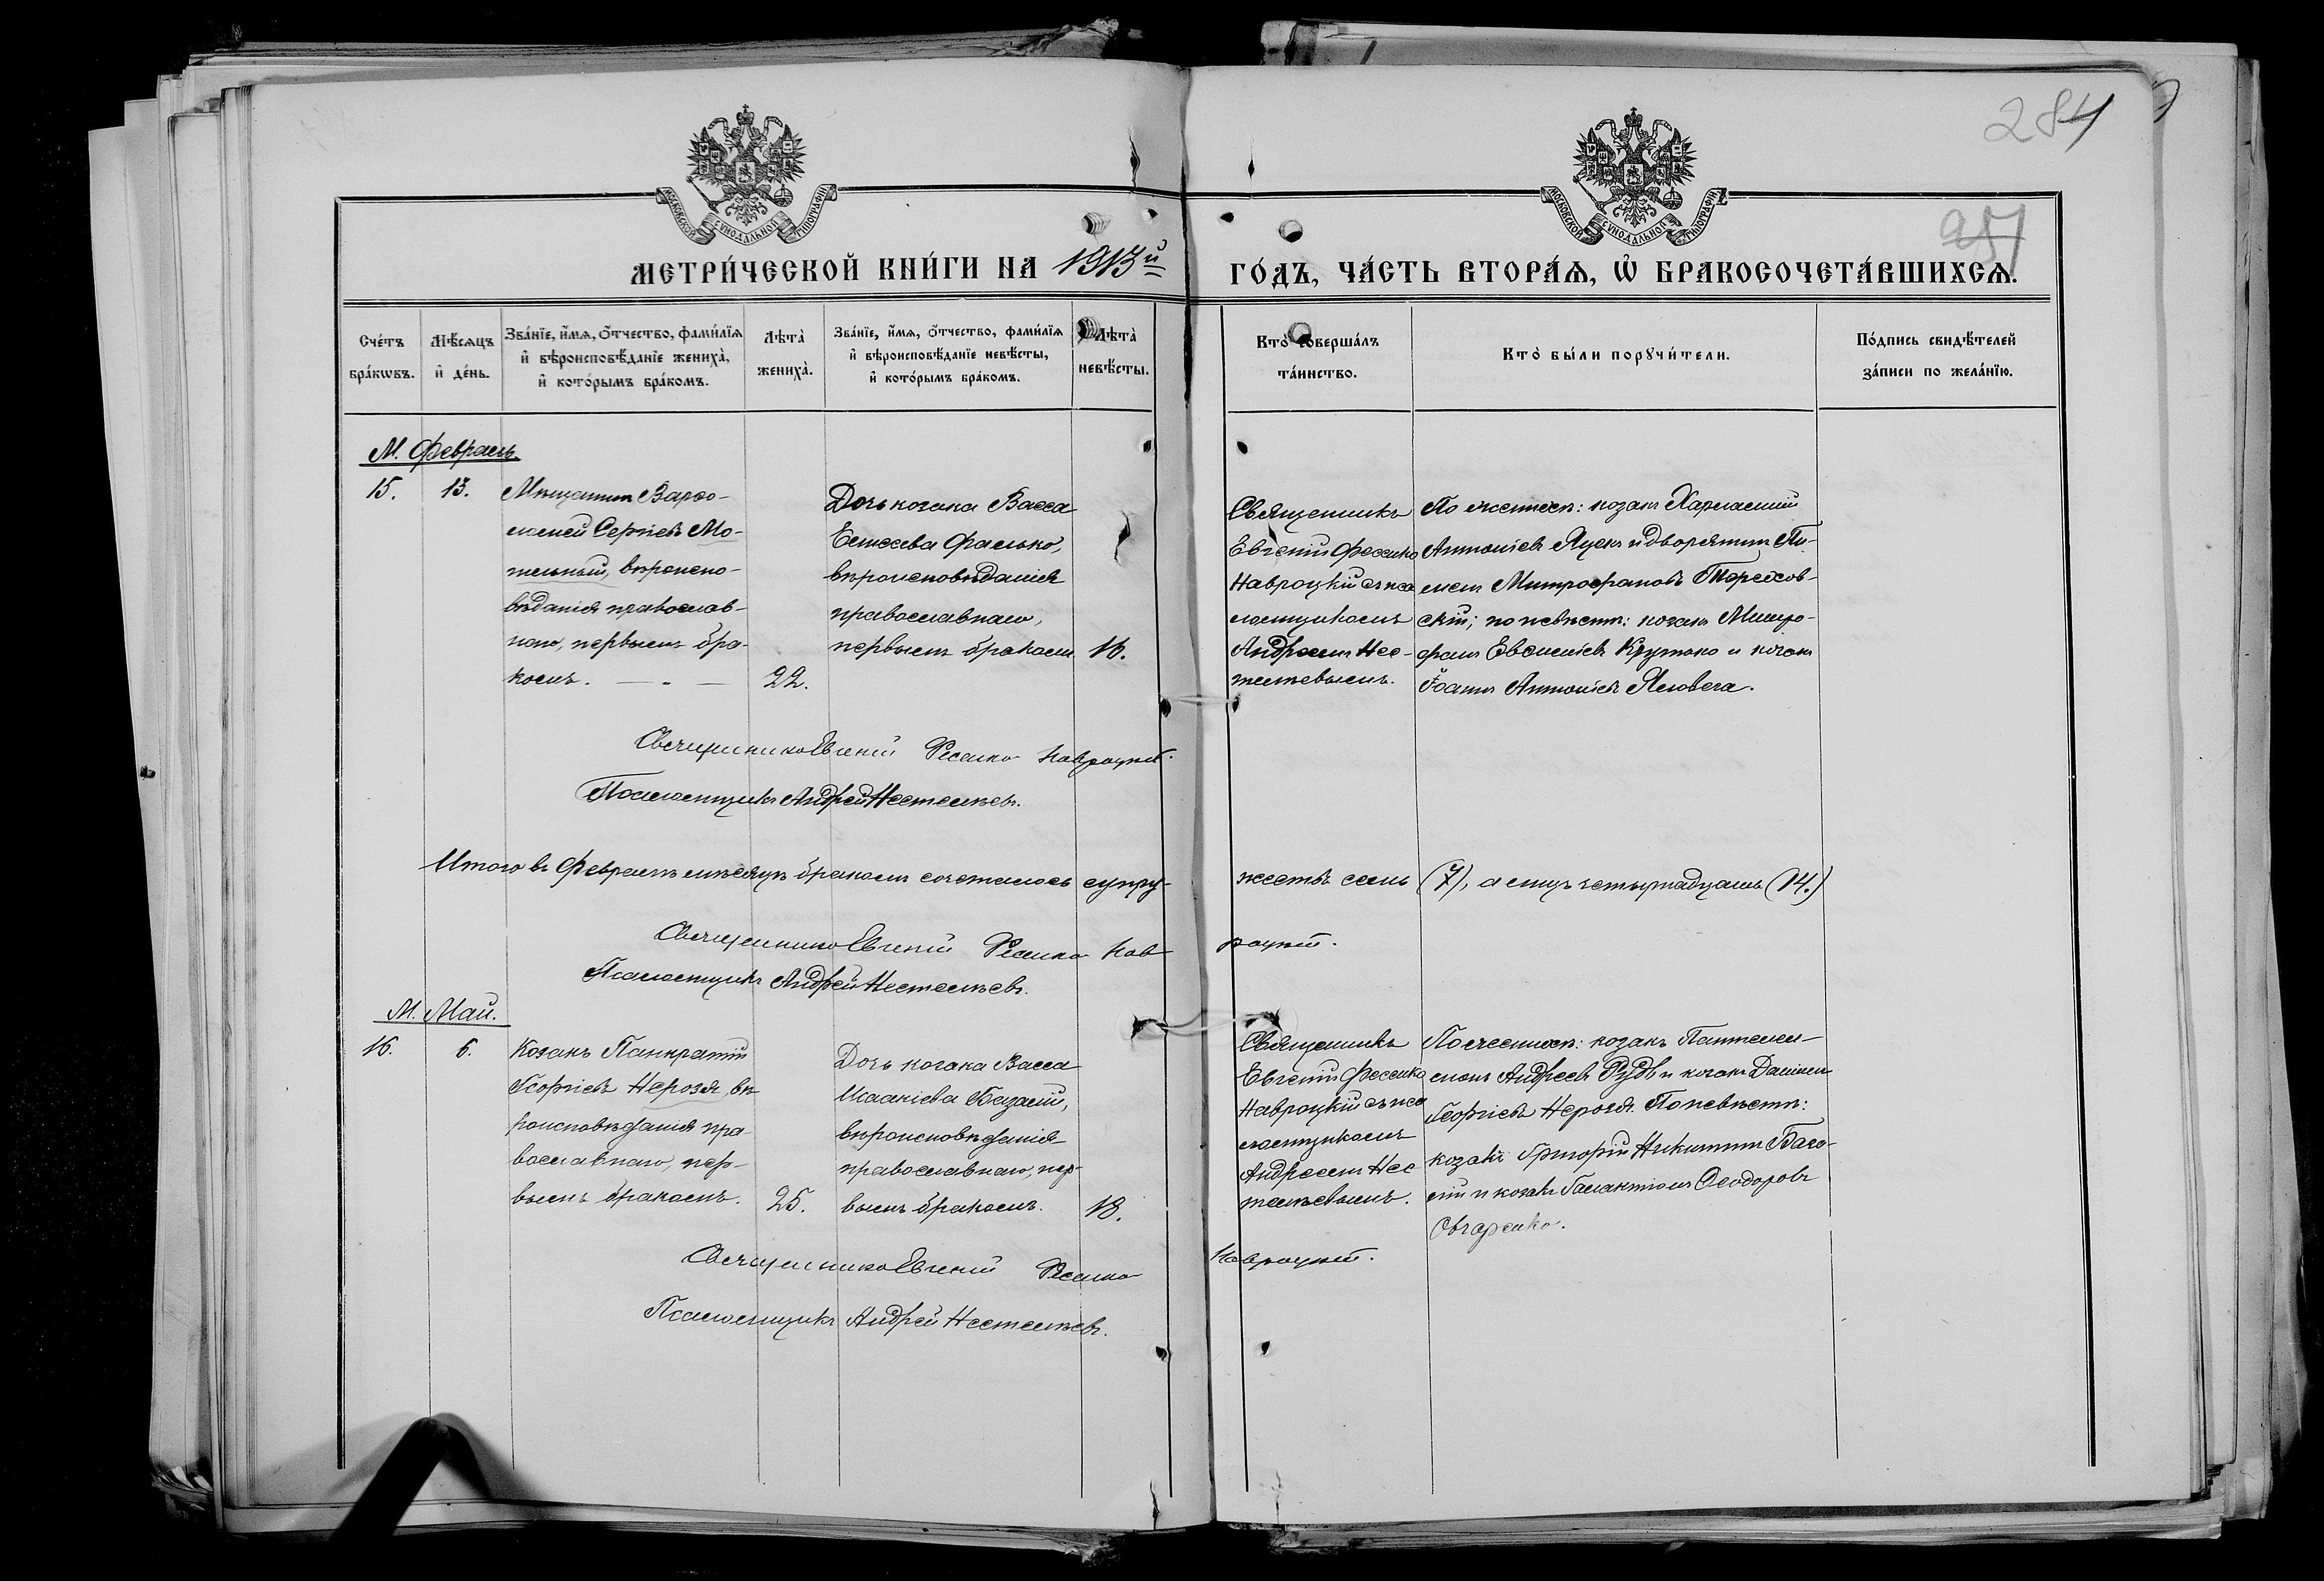 284
95
МОСКОВСКОЙ СѴНОДАЛЬНОЙ ТИПОГРАФІИ
МОСКОВСКОЙ СѴНОДАЛЬНОЙ ТИПОГРАФІИ
МЕТРИ́ЧЕСКОЙ КНИ́ГИ НА 1913й ГО́ДЪ, ЧА́СТЬ ВТОРА́Ѧ, Ѽ БРАКОСОЧЕТА́ВШИХСѦ.
Сче́тъ
бра́кѡвъ.
Мѣ́сѧцъ
и҆ де́нь.
Зва́нїе, и҆́мѧ, ѻ҆́тчество, фами́лїѧ
и҆ вѣроисповѣ́данїе жениха̀,
и҆ кото́рымъ бра́комъ.
Лѣта̀
жениха̀.
Зва́нїе, и҆́мѧ, ѻ҆́тчество, фами́лїѧ
и҆ вѣроисповѣ́данїе невѣ́сты,
и҆ кото́рымъ бра́комъ.
Лѣта̀
невѣ́сты.
Кто̀ соверша́лъ
та́инство.
Кто̀ бы́ли порꙋчи́тели.
По́дпись свидѣ́телей
за́писи по жела́нїю.
М. Февраль.
15.
13.
Мѣщанинъ Варѳо-
ломей Сергіевъ Мо-
тельный, вѣроиспо-
вѣданія православ-
наго, первымъ бра-
комъ. — „ —
22.
Дочь козака Васса
Елисеева Фалько,
вѣроисповѣданія
православнаго,
первымъ бракомъ
16.
Священникъ
Евгеній Фесенко
Навроцкій съ пса
ломщикомъ
Андреемъ Нес-
телѣевымъ.
По женихѣ: козакъ Харлампій
Антоніевъ Яцекъ и дворянинъ Пи-
менъ Митрофановъ
скій; по невѣстѣ: козакъ Митро-
фанъ Евсиміевъ Крутько и козакъ
Іоаннъ Антоніевъ Яловега.
Священникъ Евгеній Фесенко Навроцкій.
Псаломщикъ Андрей Нестелѣевъ.
Итого въ Февралѣ мѣсяцѣ бракомъ сочеталось супру-
жествъ семь (7), а лицъ четырнадцать (14.)
Священникъ Евгеній Фесенко Нав
роцкій.
Псаломщикъ Андрей Нестелѣевъ.
М. Май.
16.
6.
Козакъ Панкратій
Георгіевъ Нерозя, вѣ
роисповѣданія пра-
вославнаго, пер-
вымъ бракомъ.
25.
Дочь козака Васса
Исаакіева Багацій,
вѣроисповѣданія
православнаго, пер-
вымъ бракомъ.
18.
Священникъ
Евгеній Фесенко
Навроцкій съ пса
ломщикомъ
Андреемъ Нес
телѣевымъ.
По женихѣ: козакъ Пантелей-
монъ Андреевъ Рудь и козакъ Даніилъ
Георгіевъ Нерозя. По невѣстѣ:
козакъ Григорій Никитинъ
и козакъ Галактіонъ Ѳеодоровъ
Овчаренко.
Священникъ Евгеній Фесенко
Навроцкій.
Псаломщикъ Андрей Нестелѣевъ.